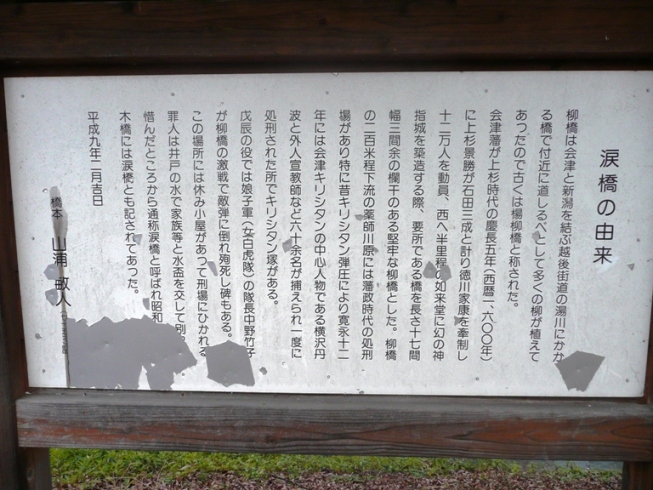 涙橋の由来
柳橋は会津と新潟を結ぶ越後街道の湯川にかか
る橋で付近に道しるべとして多くの柳が植えて
あったので古くは楊柳橋と称された。
会津藩が上杉時代の慶長五年(西暦一六〇〇年)
に上杉景勝が石田三成と計り徳川家康を牽制し
十二万人を動員、西へ半里程の如来堂に幻の神
指城を築造する際、要所である橋を長さ十七間
幅三間余の欄干のある堅牢な柳橋とした。柳橋
の二百米程下流の薬師川原には藩政時代の処刑
場があり特に昔キリシタン弾圧により寛永十二
年には会津キリシタンの中心人物である横沢丹
波と外人宣教師など六十余名が捕えられ一度に
処刑された所でキリシタン塚がある。
戊辰の役では娘子軍(女白虎隊)の隊長中野竹子
が柳橋の激戦で敵弾に倒れ殉死し碑もある。
この場所には休み小屋があって刑場にひかれる
罪人は井戸の水で家族等と水盃を交して別
惜んだところから通称涙橋と呼ばれ昭和
木橋には涙橋とも記されてあった。
平成九年二月吉日
橋本 山浦 畋人